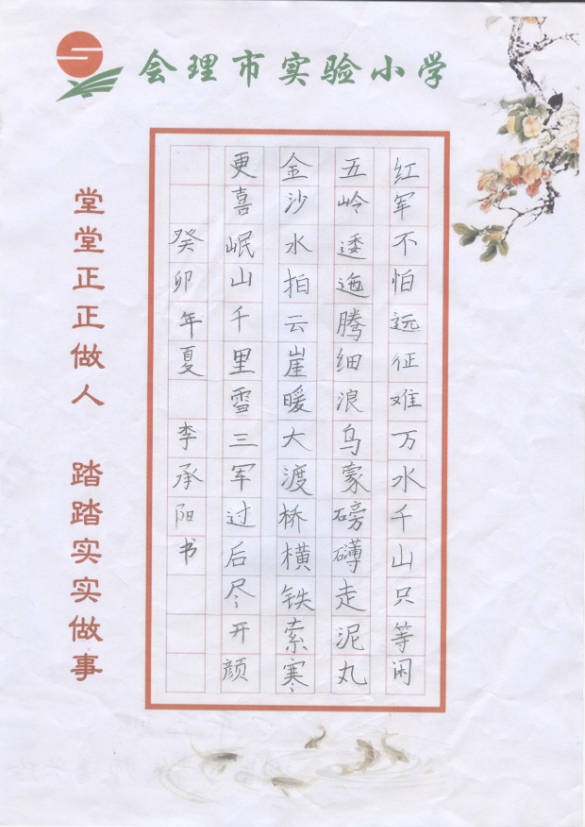 会理市实验小学
红军不怕远征难万水千山只等闲
五岭逶迤腾细浪乌蒙磅礴走泥丸
金沙水拍云崖暖大渡桥横铁索寒
更喜岷山千里雪三军过后尽开颜
癸卯年夏 李承阳书
堂堂正正做人 踏踏实实做事